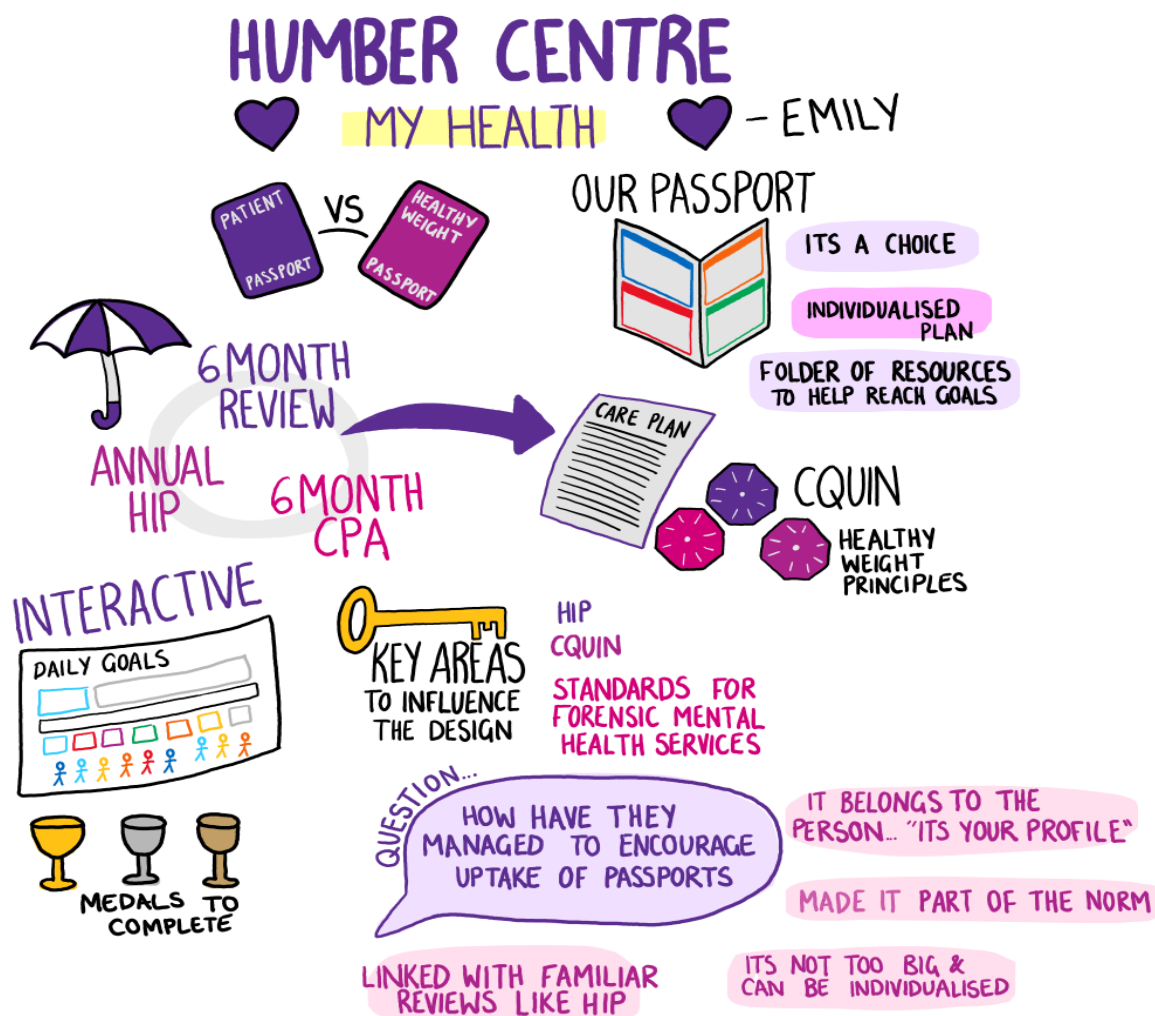 HUMBER CENTRE
MY HEALTH
- EMILY
PATIENT
PASSPORT
VS
HEALTHY
WEIGHT
PASSPORT
OUR PASSPORT
ITS A CHOICE
INDIVIDUALISED
PLAN
FOLDER OF RESOURCES
TO HELP REACH GOALS
6 MONTH
REVIEW
ANNUAL
HIP
6 MONTH
CPA
CARE PLAN
CQUIN
HEALTHY
WEIGHT
PRINCIPLES
INTERACTIVE
DAILY GOALS
MEDALS TO
COMPLETE
KEY AREAS
TO INFLUENCE
THE DESIGN
HIP
CQUIN
STANDARDS FOR
FORENSIC MENTAL
HEALTH SERVICES
QUESTION...
HOW HAVE THEY
MANAGED TO ENCOURAGE
UPTAKE OF PASSPORTS
IT BELONGS TO THE
PERSON... "ITS YOUR PROFILE"
MADE IT PART OF THE NORM
LINKED WITH FAMILIAR
REVIEWS LIKE HIP
ITS NOT TOO BIG &
CAN BE INDIVIDUALISED